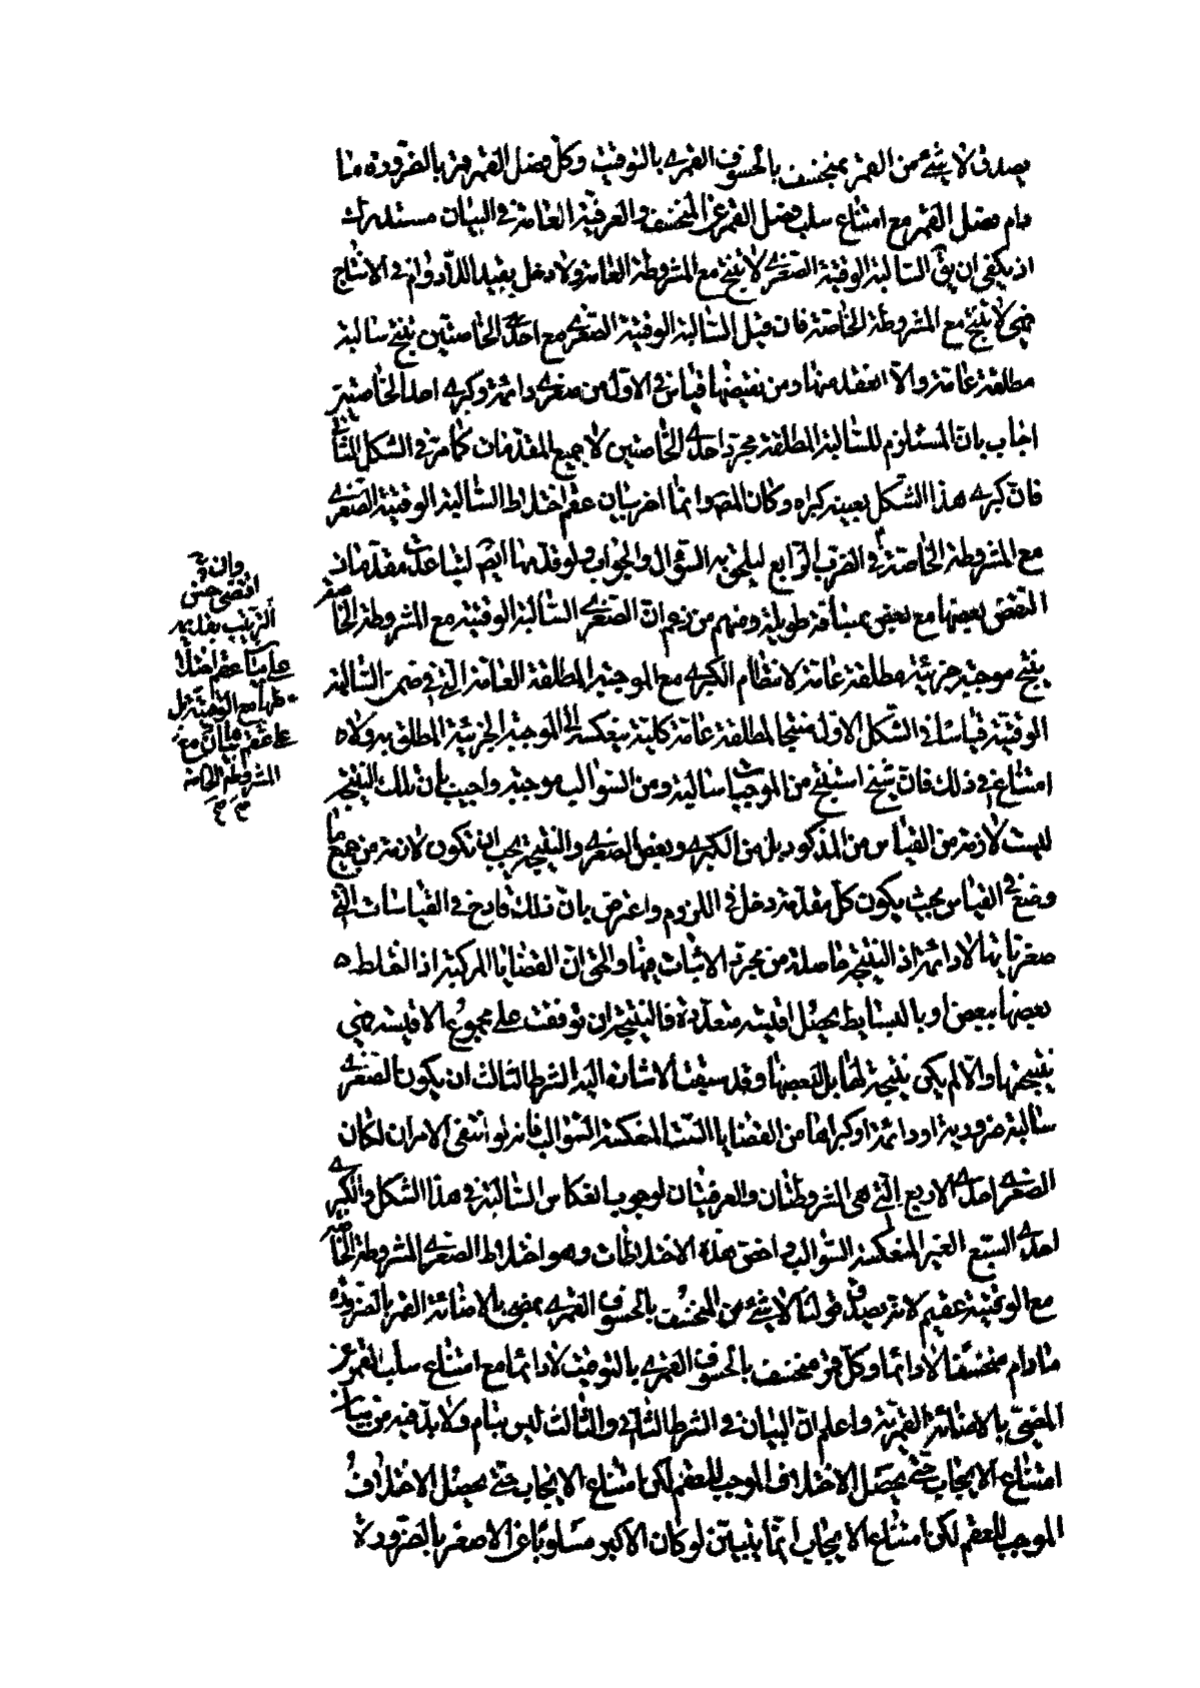 يصدق لا شئ من القمر بمنخسف بالخسوف القمرى بالتوقيت وكل فصل القمر قمر بالضرورة ما
دام فصل القمر مع امتناع سلب فصل القمر عن المنخسف والعرفية العامة فى البيان مستدرك
اذ يكفى ان يق السالبة الوقتية الصغرى لا ينتج مع المشروطة العامة ولا دخل بقيد اللادوام فى الانتاج
فهى لا ينتج مع المشروطة الخاصة فان قيل السالبة الوقتية الصغرى مع احدى الخاصتين ينتج سالبة
مطلقة عامة والا انعقد منها ومن نقيضها قياس فى الاول من صغرى دائمة وكبرى احد الخاصتين
اجاب بان المستلزم للسالبة المطلقة مجرد احدى الخاصتين لا جميع المقدمات كما مر فى الشكل الثانى
فان كبرى هذا الشكل بعينه كبراه وكان المص وانما اخر بيان عقم اختلاط السالبة الوقتية الصغرى
مع المشروطة الخاصة فى الضرب الرابع ليلحق به السؤال والجواب ولو قدمها ايضا لتباعدت مقدمات
النقض بعضها مع بعض بمسافة طويلة ومنهم من زعم ان الصغرى السالبة الوقتية مع المشروطة الخاصة
ينتج موجبة جزئية مطلقة عامة لانتظام الكبرى مع الموجبة المطلقة العامة التى فى ضمن السالبة
الوقتية قياسا فى الشكل الاول منتجا لمطلقة عامة كلية منعكسة الى الموجبة الجزئية المطلق به ولا
امتناع فى ذلك فان شيخ استنتج من الموجبات سالبة ومن السوالب موجبة واجيب بان تلك النتيجة
ليست لازمة من القياس من المذكور بل من الكبرى وبعض الصغرى والنتيجة يجب ان تكون لازمة من جميع ما
وضع فى القياس بحيث يكون كل مقدمة دخل فى اللزوم واعترض بان ذلك قادح فى القياسات التى
صغرياتها لادائمة اذ النتيجة حاصلة من مجرد الاثبات فيها والحق ان القضايا المركبة اذا اختلطت
بعضها ببعض او بالبسايط يحصل اقيسة متعددة فالنتيجة ان توقفت على مجموع الاقيسة فهى
نتيجتها والا لم يكن نتيجة لها بل لبعضها وقد سبقت الاشارة اليه الشرط الثالث ان يكون الصغرى
سالبة ضرورية او دائمة او كبراها من القضايا الست المنعكسة السوالب فانه لو انتفى الامران لكان
الصغرى احدى الاربع التى هى المشروطتان والعرفيتان لوجوب انعكاس السالبة فى هذا الشكل والكبرى
احدى السبع الغير المنعكسة السوالب واخص هذه الاختلاطات وهو اختلاط الصغرى المشروطة الخاصة
مع الوقتية عقيم لانه يصدق قولنا لا شئ من المنخسف بالخسوف القمرى بمضئ بالاضائة القمر بالضرورة
ما دام منخسفا لا دائما وكل قمر منخسف بالخسوف القمرى بالتوقيت لا دائما مع امتناع سلب القمر عن
المضئ بالاضائة القمرية واعلم ان البيان فى الشرط الثانى والثالث ليس بتام ولا بد فيه من بيان
امتناع الايجاب حتى يحصل الاختلاف الموجب للعقم لكن امتناع الايجاب حتى يحصل الاختلاف
الموجب للعقم لكن امتناع الايجاب انما يتبين لو كان الاكبر مسلوبا عن الاصغر بالضرورة
وان
اقتضى حسن
الترتيب تقديمه
على بيان عقم اختلا
طها مع الوقتية بل
على عقم بيان مع
المشروطة العامة